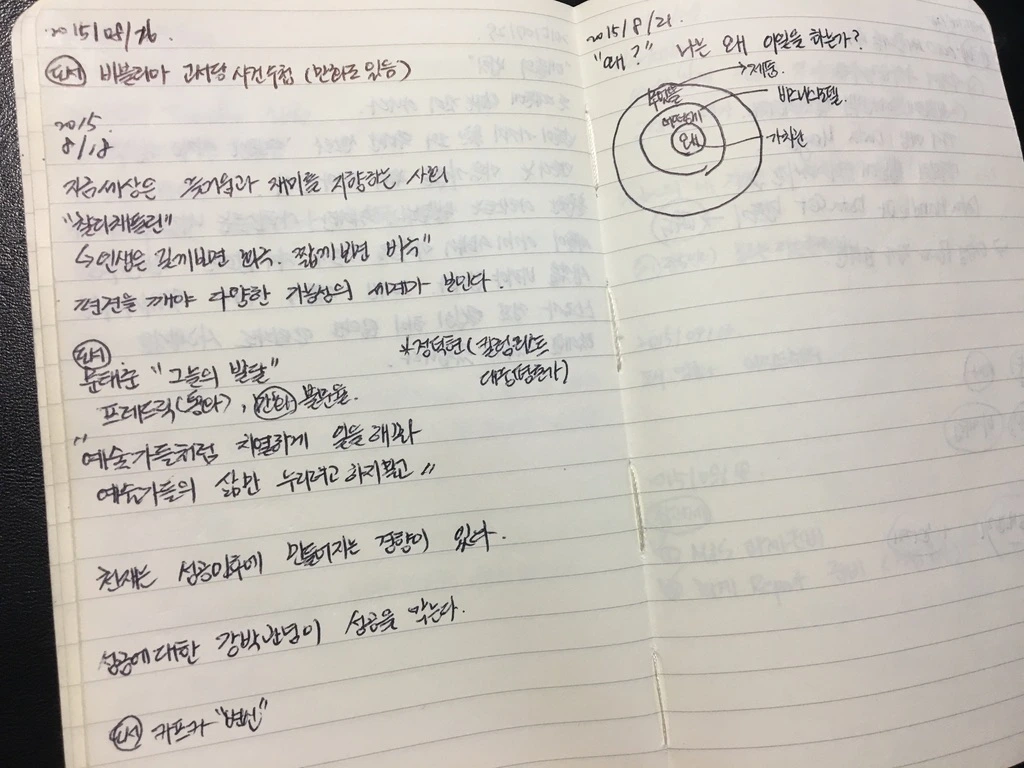 2015/08/26.
도서 비블리아 고서당 사건수첩 (만화도 있음)
2015.
8/18
지금세상은 즐거움과 재미를 지향하는 사회
"찰리채플린"
↳ 인생은 길게보면 희극, 짧게보면 비극"
편견을 깨야 다양한 가능성의 세계가 보인다.
도서
문태준 "그늘의 발달"
*정덕현(칼럼리스트
대중평론가)
프레드릭(동화), 만화
"예술가들처럼 치열하게 일을 해라
예술가들의 삶만 누리려고 하지말고"
천재는 성공이후에 만들어지는 경향이 있다.
성공에대한 강박관념이 성공을 막는다.
도서 카프카 "변신"
2015/8/21.
"왜?" 나는 왜 이일을 하는가?
→제품.
무엇을
비즈니스모델.
어떻게
왜
가치관